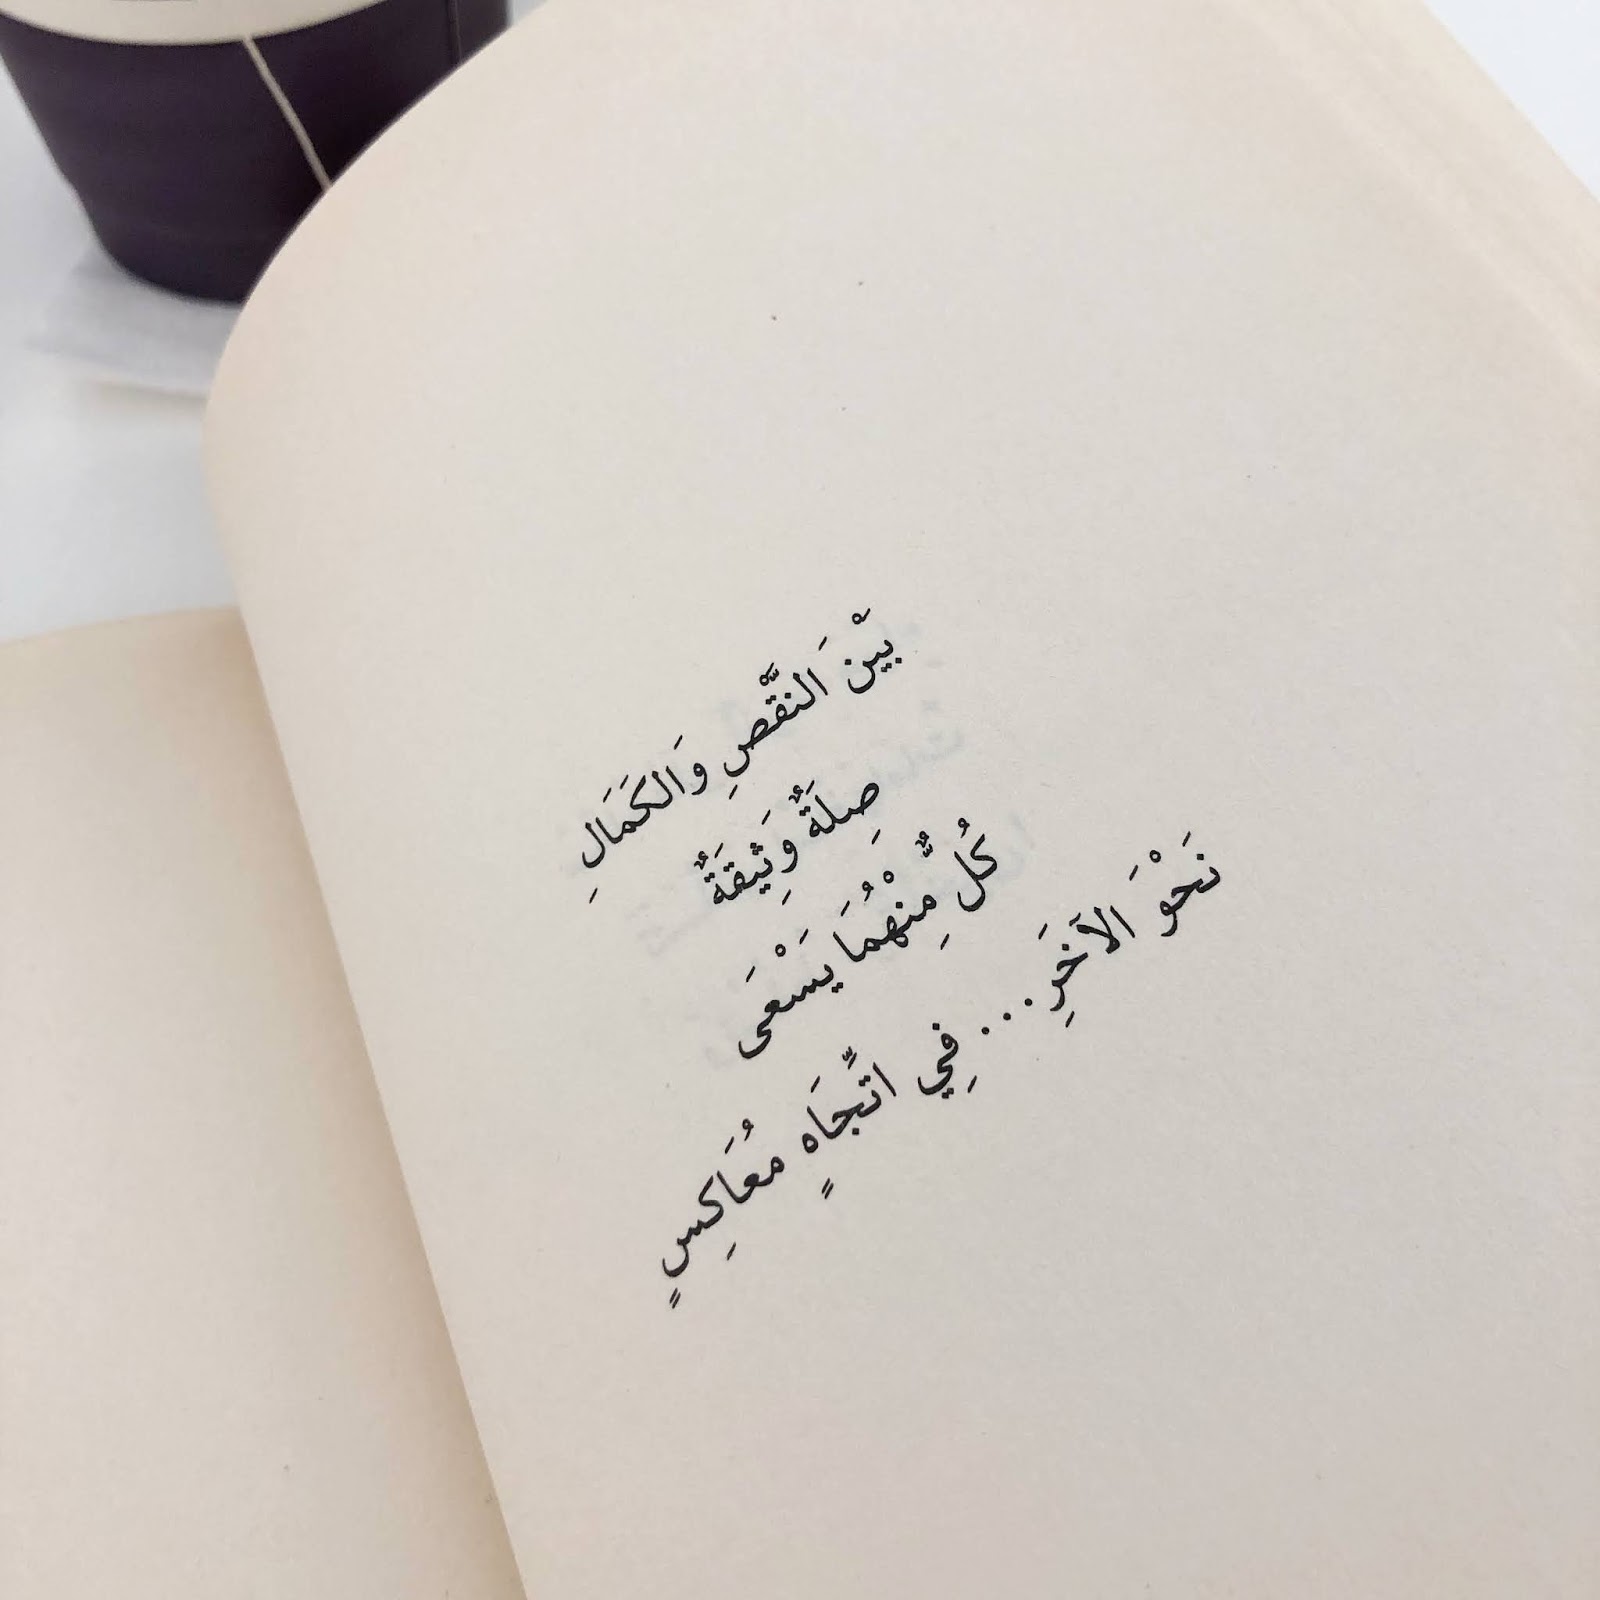 بَيْنَ النَّقْصِ وَالكَمَالِ
صِلَةٌ وَثِيقَةٌ
كُلٌّ مِنْهُمَا يَسْعَى
نَحْوَ الآخَرِ... فِي اتِّجَاهٍ مُعَاكِسٍ